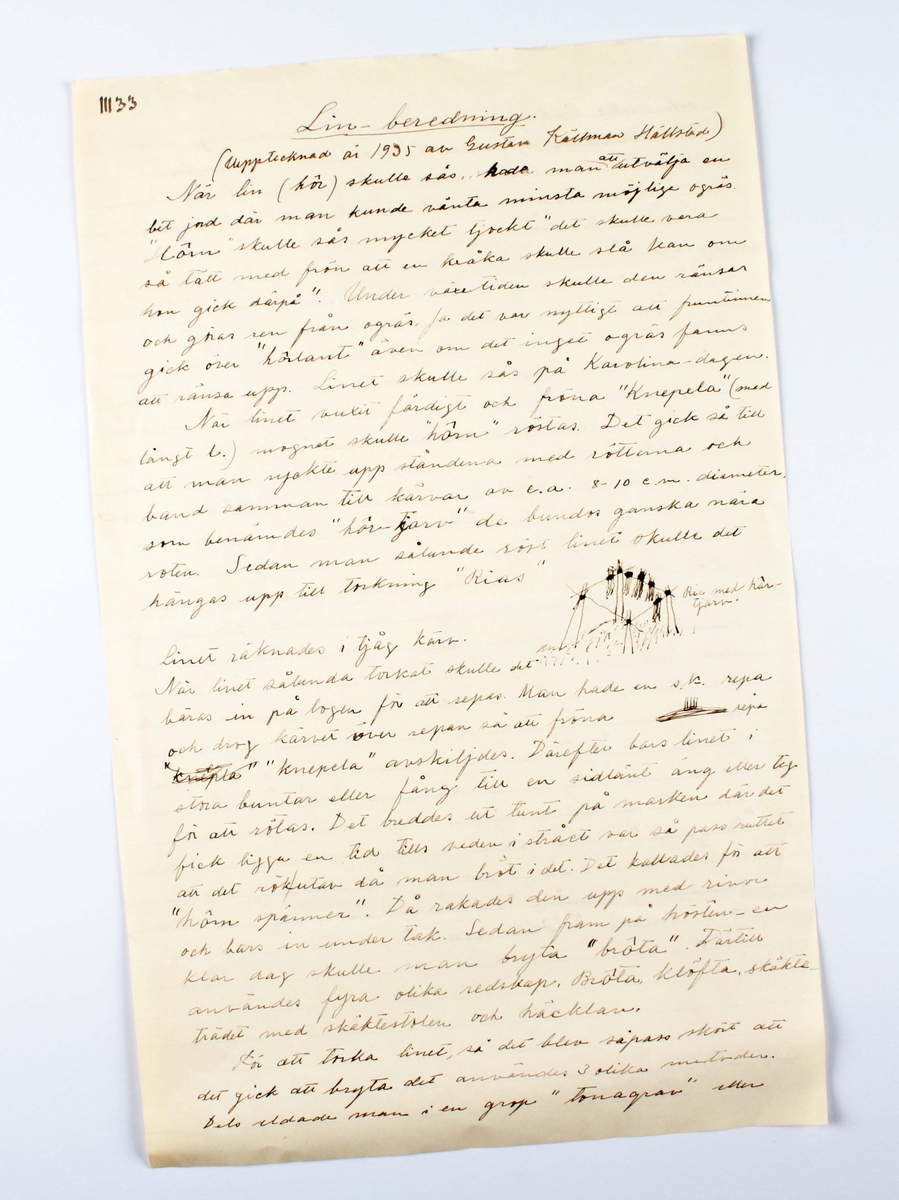 III 33
Lin-beredning.
(Upptecknad år 1935 av Gustav Källman Hällstad)
När lin (hör) skulle sås, hade man att utvälja en
bit jord där man kunde vänta minsta möjliga ogräs.
"Hörn" skulle sås mycket tjockt "det skulle vara
så tätt med frön att en kråka skulle slå kan om
hon gick därpå". Under växetiden skulle den ränsas
och göras ren från ogräs. Ja det var nyttigt att fruntimmen
gick över "hörlant" även om det inget ogräs fanns
att ränsa upp. Linet skulle sås på Karolina-dagen.
När linet vuxit färdigt och fröna "Knepela" (med
långt l.) mognet skulle "hörn" röstas. Det gick så till
att man ryckte upp stånden med rötterna och
band samman till kärvar av c.a. 8-10 c.m. diameter.
som benämdes "hör-tjarv" de bundos ganska nära
roten. Sedan man sålunde röst linet skulle det
hängas upp till torkning "Rias"
Ria med hör-
tjarv.
Linet räknades i tjåg kärv.
När linet sålunda torkat skulle det
bäras in på logen för att repas. Man hade en s.k. repa
och drog kärvet över repan så att fröna
repa
"knepla" "knepela" avskiljdes. Därefter bars linet i
stora buntar eller fång till en sidlänt äng eller teg
för att rötas. Det breddes ut tunt på marken där det
fick ligga en tid tills veden i strået var så pass ruttet
att det sök utav då man bröt i det. Det kallades för att
"hörn spänner". Då rakades den upp med rivor
och bars in under tak. Sedan fram på hösten - en
klar dag skulle man bryta "bröta". Härtill
användes fyra olika redskap. Bröta, klöfta, skäkte-
trädet med skäktestolen och häcklan.
För att torka linet, så det blev såpass skört att
det gick att bryta det användes 3 olika metoder.
Dels eldade man i en grop "tonagrav" eller